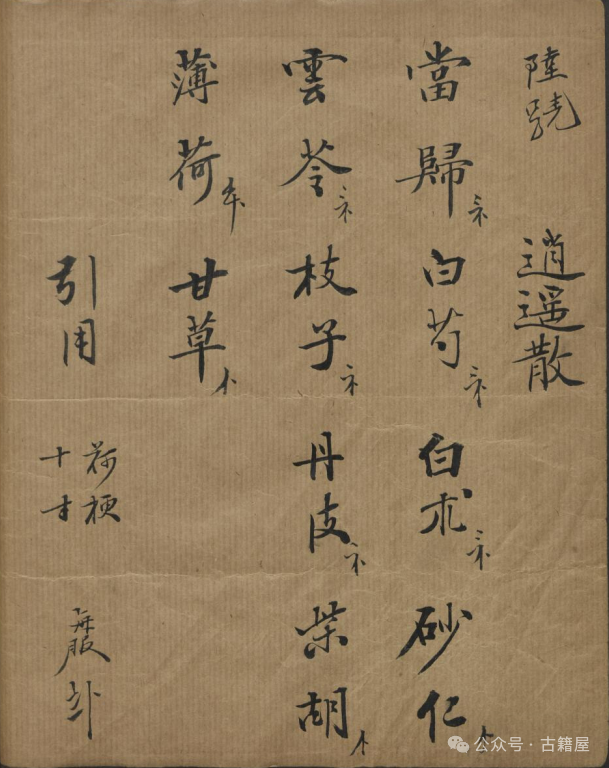 陸號 逍遥散
當歸 白芍 白朮 砂仁
雲苓 枝子 丹皮 柴胡
薄荷 甘草
引用 荷梗 十寸 服
公众号·古籍屋